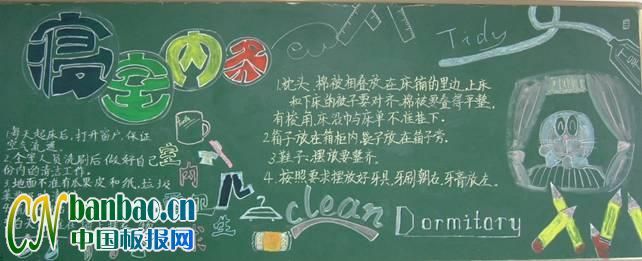 寝室内务
Tidy
1.每天起床后,打开窗户,保证
空气流通。
2.全室人员洗刷后做好自己
份内的清洁工作。
3.地面不准有瓜果皮和纸、垃圾
室内卫生
1.枕头、棉被相叠放在床铺的里边,上床
和下床的被子要对齐,棉被要叠得平整,
有枕用床浴巾与床单不准垂下。
2.箱子放在箱柜内,
3.鞋子:摆放要整齐。
4.按照要求摆放好牙具,牙刷朝左,牙膏放左。
clean
Dormitary
CN banbao.cn
中国板报网